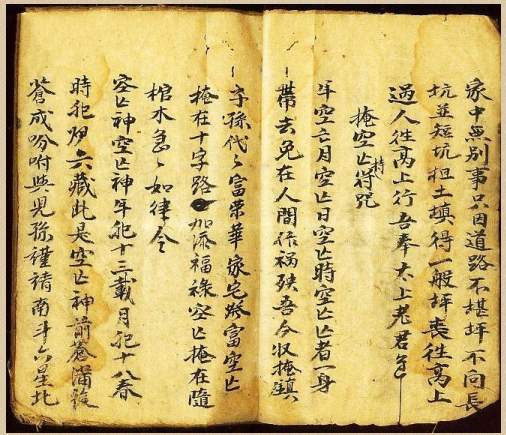 家中無别事只因道路不堪坪不向長
坑並短坑担土填得一般坪喪往高上
過人往高上行吾奉太上老君
掩空亡符咒
年空亡月空亡日空亡時空亡亡者一身
帶去免在人間作禍殃吾今收掩鎮
子孫代々富荣華家宅發富空亡
掩在十字路加添福祿空亡掩在隨
棺木急々如律令
空亡神空亡神年犯十三載月犯十八春
時犯六藏此是空亡神前蒼滿
蒼成吩咐與兒孫謹請南斗六星北